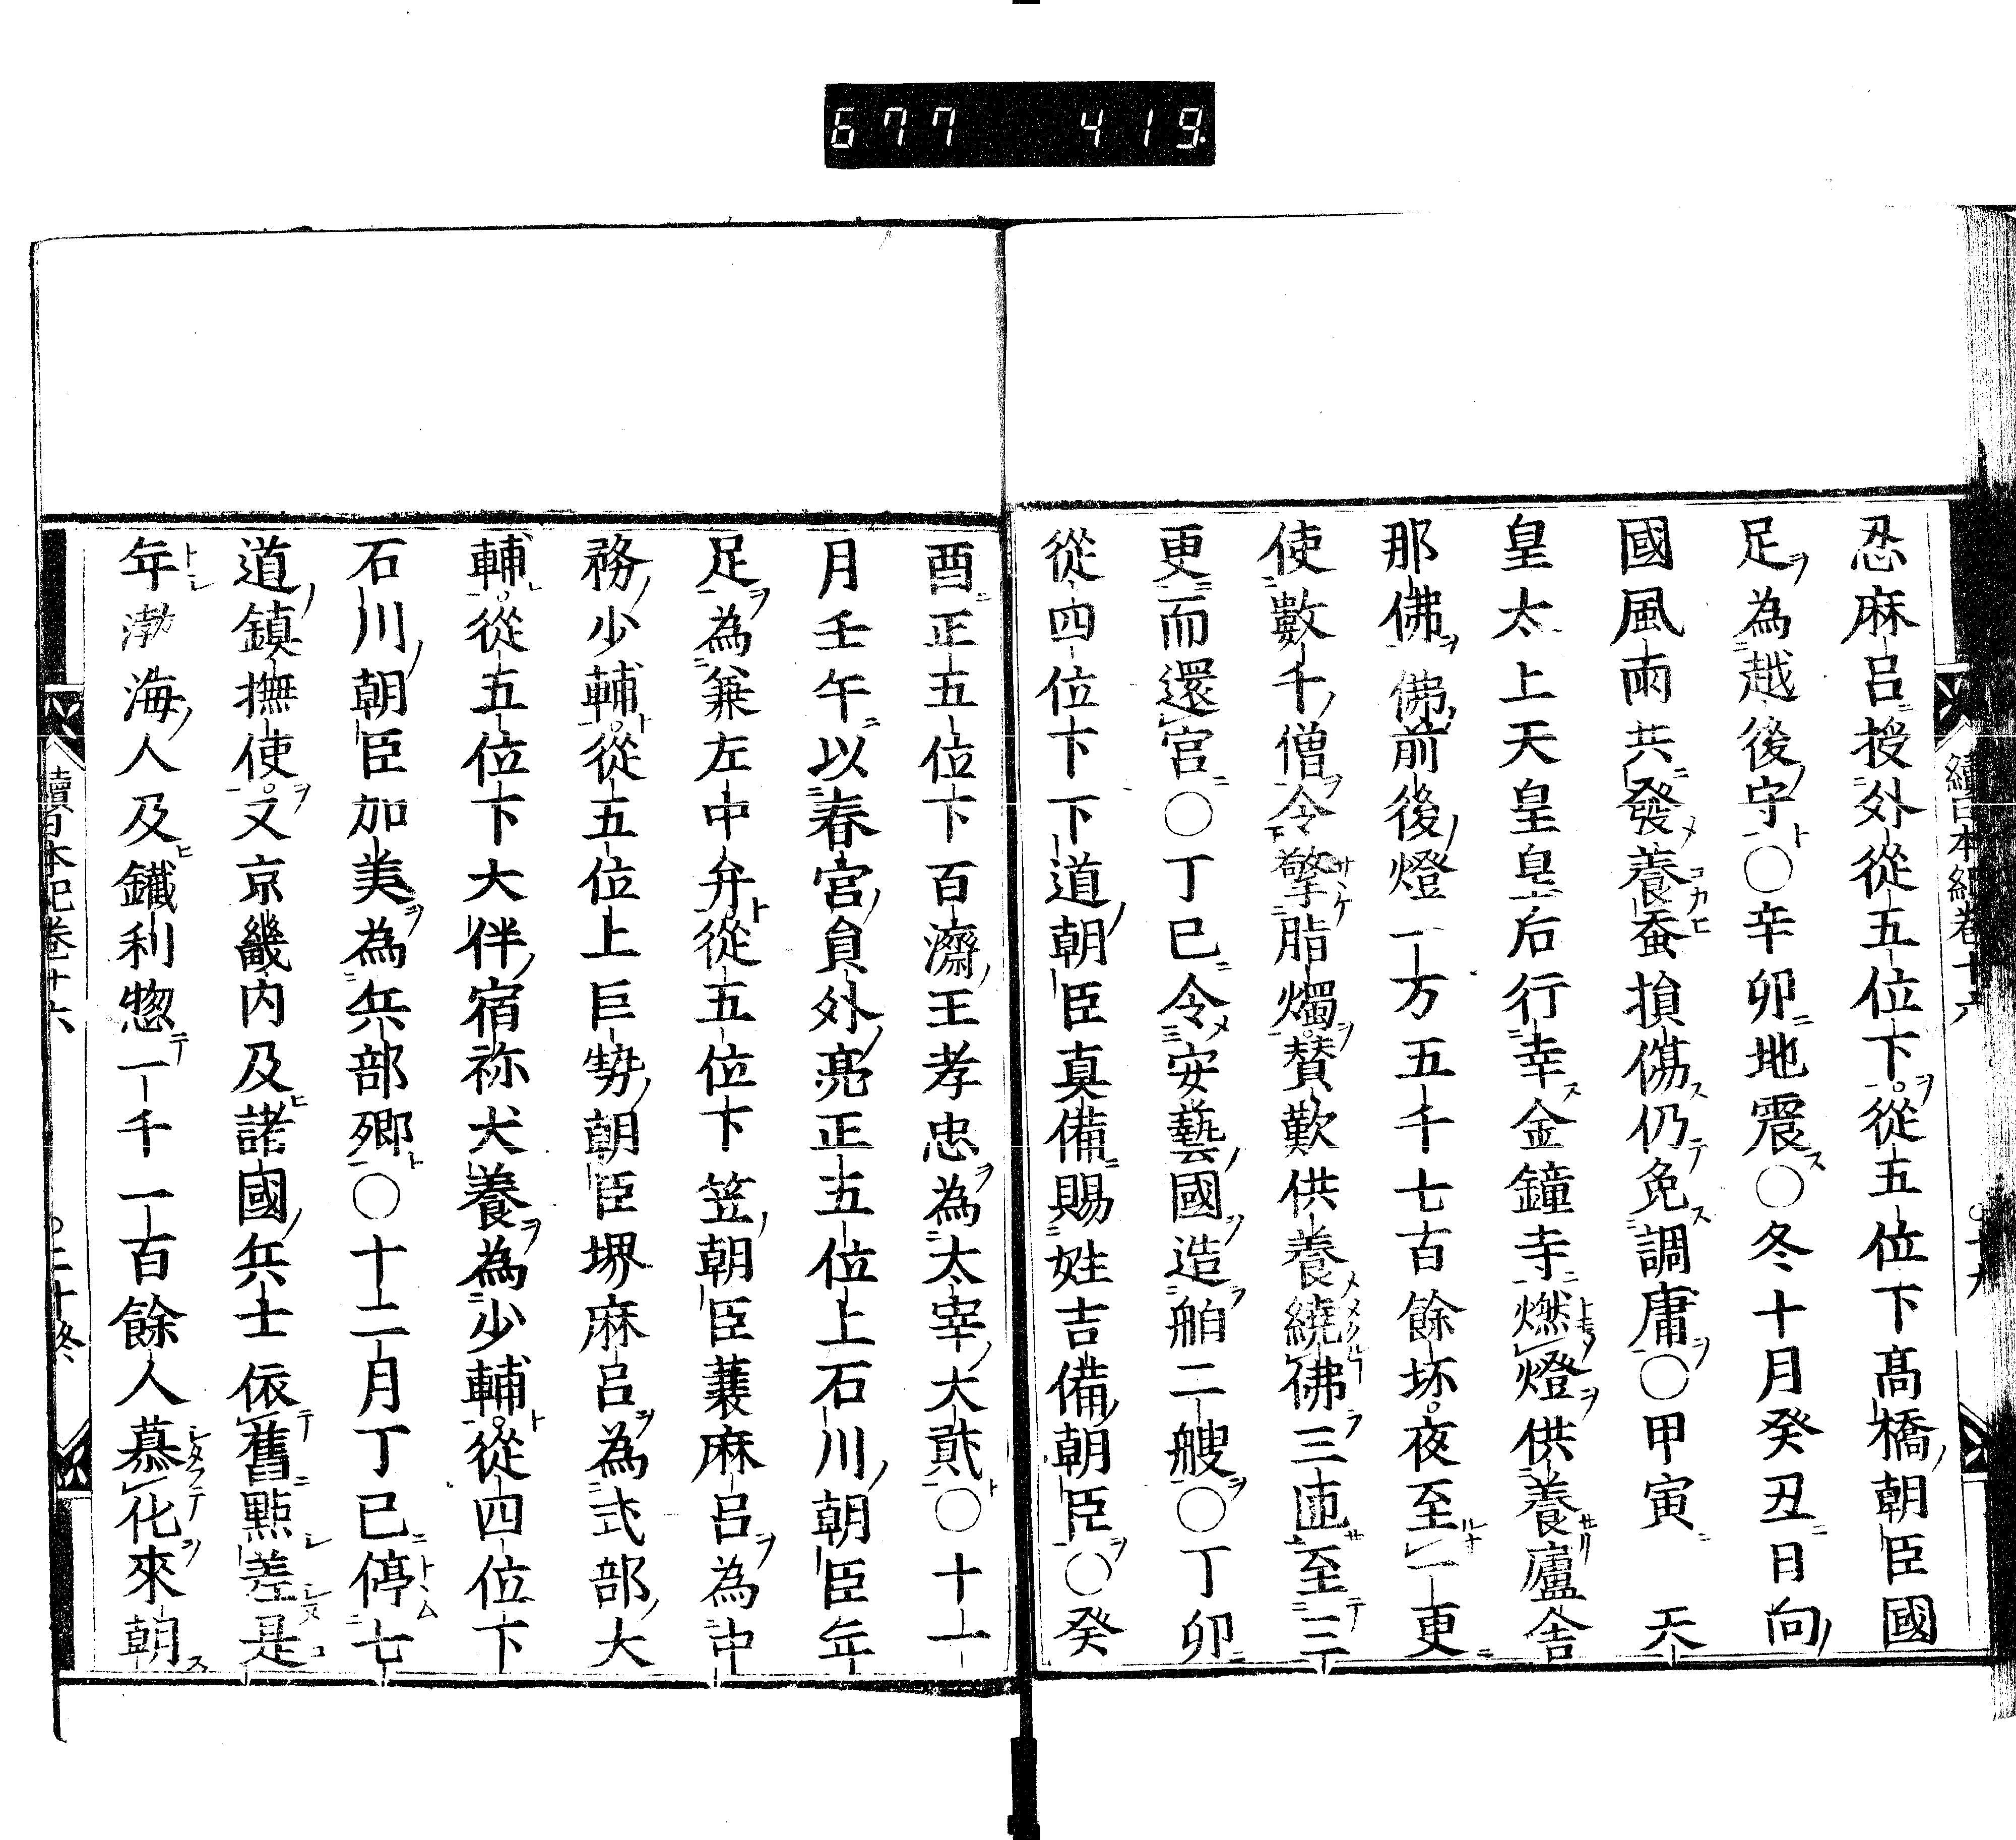 677 419.
續日本紀卷十六
忍麻呂授外從五位下從五位下髙橋朝臣國
足為越後守○辛卯地震○冬十月癸丑日向
國風雨共發養蚕損傷仍免調庸○甲寅 天
皇太上天皇皇后行幸金鐘寺燃燈供養盧舍
那佛佛前後燈一万五千七百餘坏夜至一更
使數千僧令擎脂燭賛歎供養繞佛三匝至三
更而還宮○丁巳令安藝國造舶二艘○丁卯
從四位下下道朝臣真備賜姓吉備朝臣○癸
酉正五位下百濟王孝忠為大宰大貳○十一
月壬午以春宮員外亮正五位上石川朝臣年
足為兼左中弁從五位下笠朝臣蓑麻呂為中
務少輔從五位上巨勢朝臣堺麻呂為式部大
輔從五位下大伴宿祢犬養為少輔從四位下
石川朝臣加美為兵部卿○十二月丁巳停七
道鎮撫使又京畿内及諸國兵士依舊點差是
年渤海人及鐵利惣一千一百餘人慕化來朝
續日本紀卷十六 ○二十終